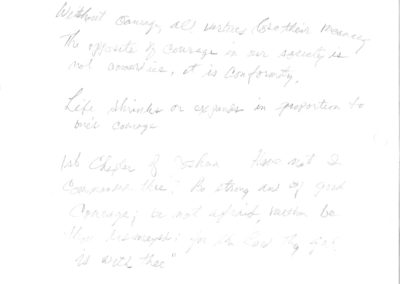 Without Courage, all virtues lose their meaning
The opposite of courage in our society is
not cowardice, it is Conformity.
Life shrinks or expands in proportion to
one's courage
1st Chapter of Joshua Have not I
Commanded thee? Be strong and of good
Courage; be not afraid, neither be
thou dismayed: for the Lord thy god
is with thee"